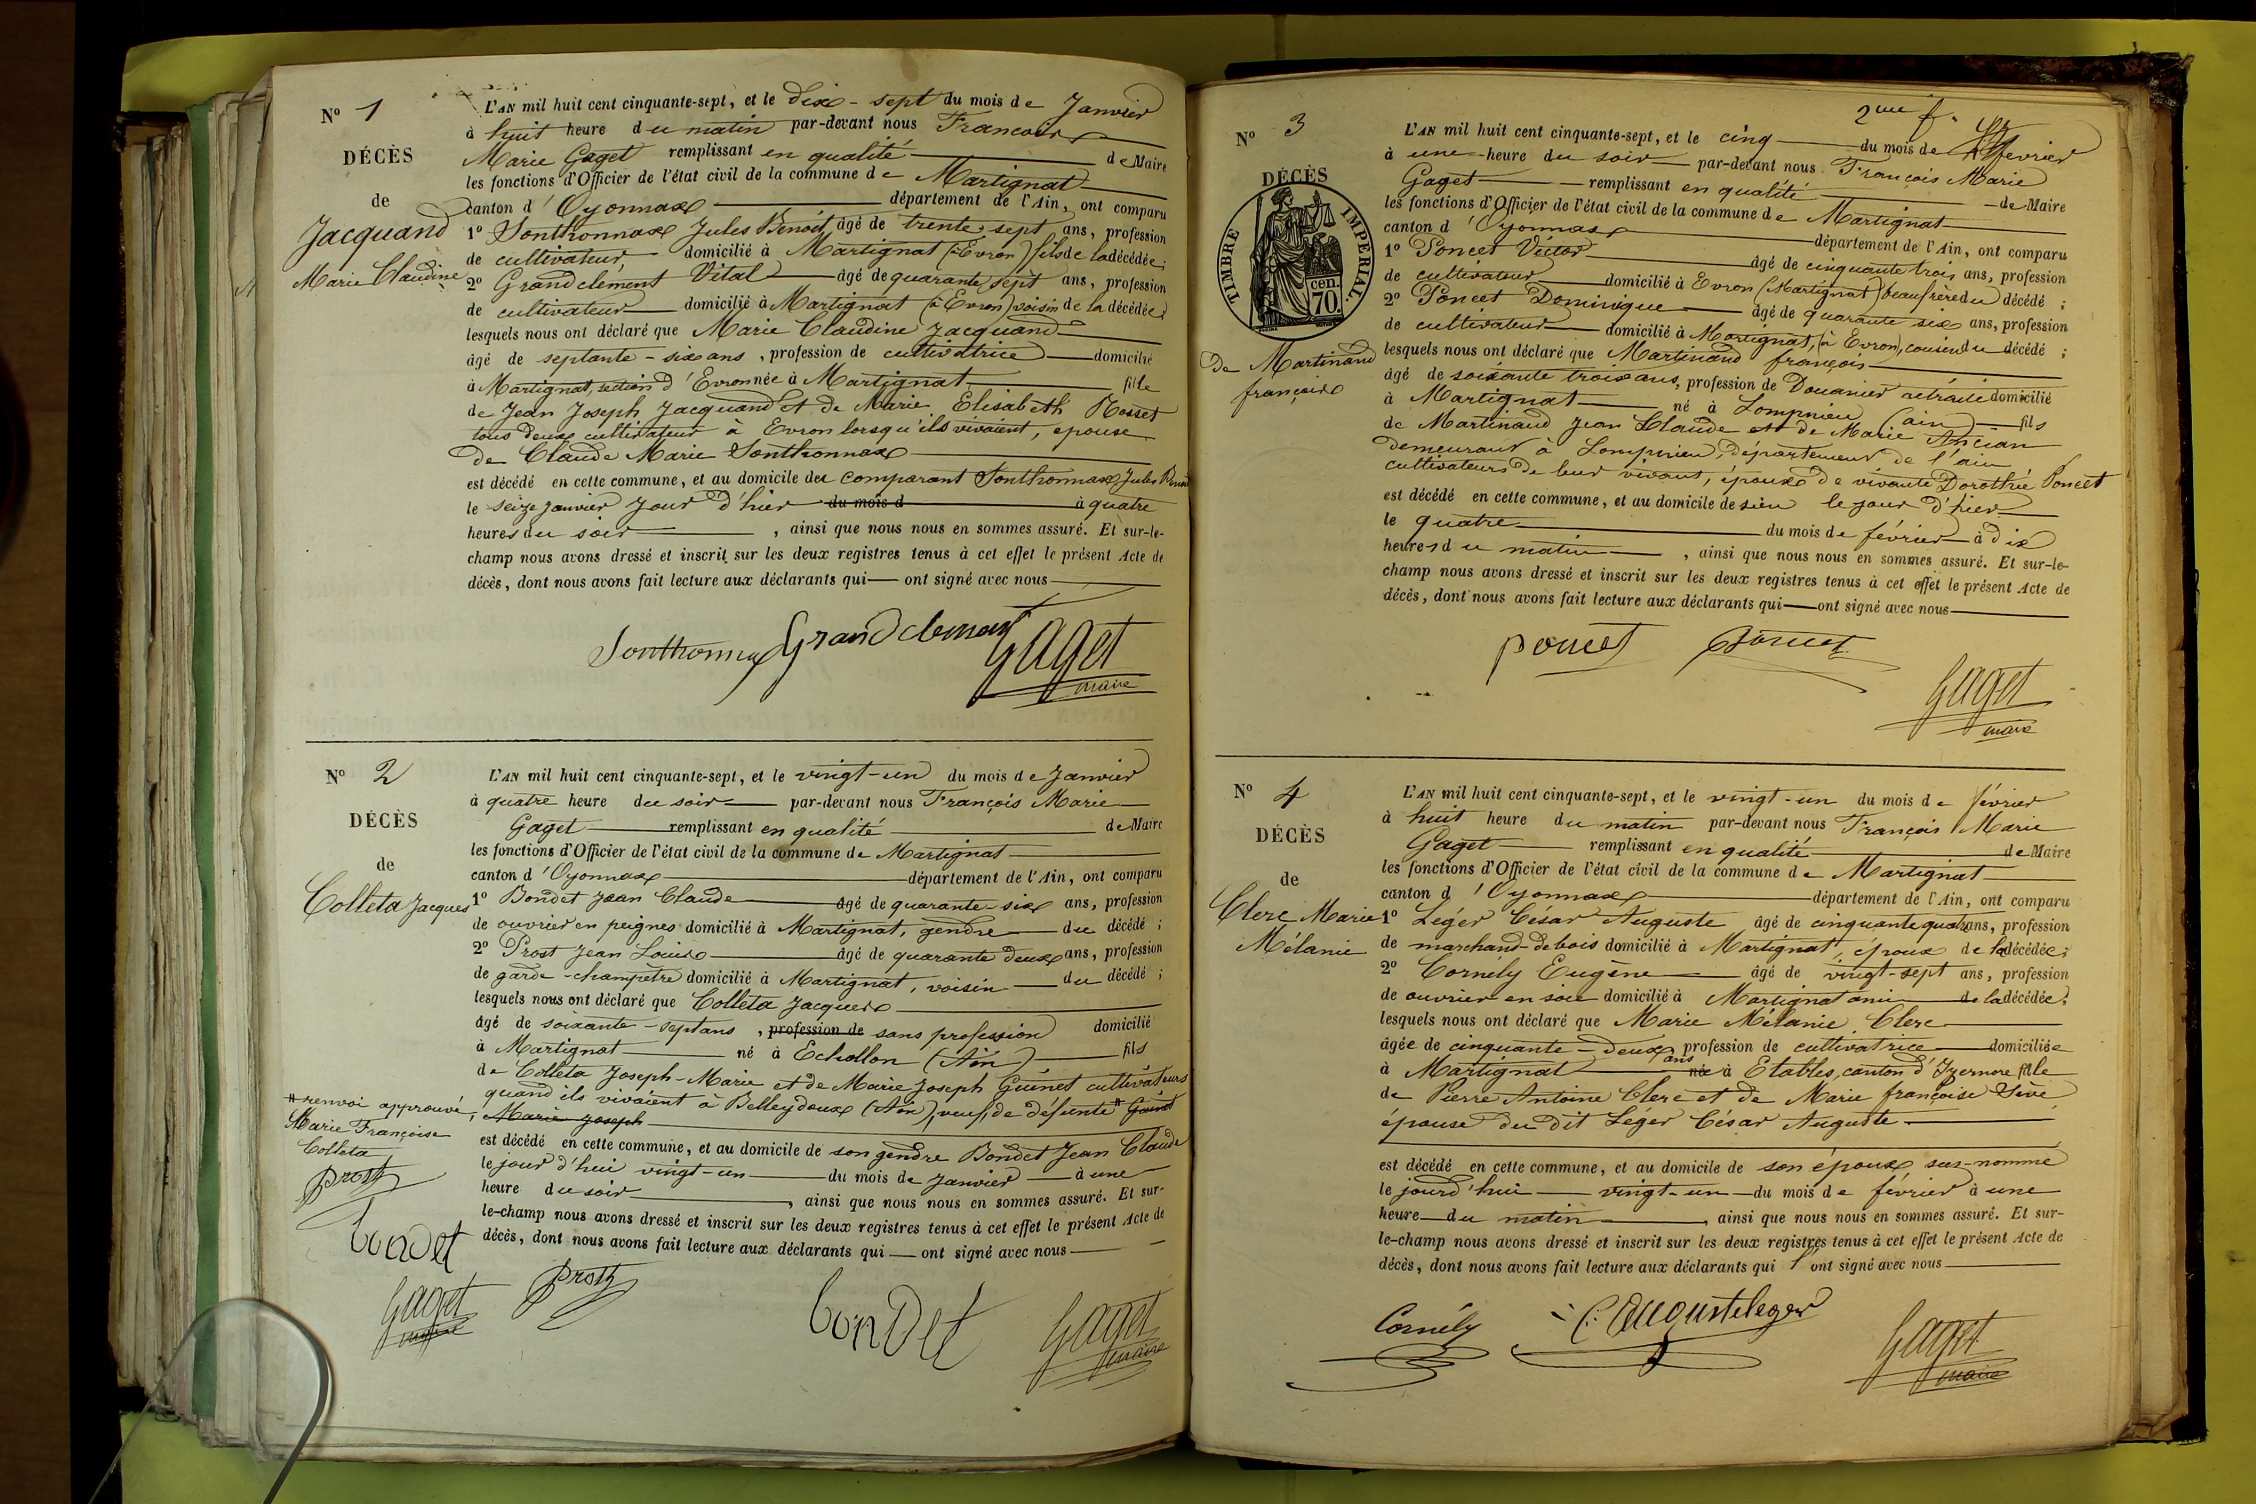 N° 1
DÉCÈS
de
Jacquand
Marie Claudine
L'AN mil huit cent cinquante-sept, et le dix-sept du mois de Janvier
à huit heure du matin par-devant nous François
Marie Gaget remplissant en qualité de Maire
les fonctions d'Officier de l'état civil de la commune de Martignat
canton d'Oyonnax département de l'Ain, ont comparu
1° Sonthonnax Jules Benoit, âgé de trente sept ans, profession
de cultivateur domicilié à Martignat (Evron) fils de la décédée;
2° Grandclément Vital âgé de quarante sept ans, profession
de cultivateur domicilié à Martignat (à Evron) voisin de la décédée;
lesquels nous ont déclaré que Marie Claudine Jacquand
âgé de septante-six ans, profession de cultivatrice domicilié
à Martignat, section d'Evron née à Martignat fille
de Jean Joseph Jacquand et de Marie Elisabeth Rosset
tous deux cultivateur à Evron lorsqu'ils vivaient, epouse
de Claude Marie Sonthonnax
est décédé en cette commune, et au domicile du comparant Sonthonnax Jules Benoit
le seize janvier jour d'hier du mois d à quatre
heures du soir, ainsi que nous nous en sommes assuré. Et sur-le-
champ nous avons dressé et inscrit sur les deux registres tenus à cet effet le présent Acte de
décès, dont nous avons fait lecture aux déclarants qui ont signé avec nous
Sonthonnax Grandclement Gaget
maire
N° 2
DÉCÈS
de
Colleta Jacques
L'AN mil huit cent cinquante-sept, et le vingt-un du mois de Janvier
à quatre heure du soir par-devant nous François Marie
Gaget remplissant en qualité de Maire
les fonctions d'Officier de l'état civil de la commune de Martignat
canton d'Oyonnax département de l'Ain, ont comparu
1° Bondet Jean Claude âgé de quarante-six ans, profession
de ouvrier en peignes domicilié à Martignat, gendre du décédé;
2° Prost Jean Louis âgé de quarante deux ans, profession
de garde-champêtre domicilié à Martignat, voisin du décédé;
lesquels nous ont déclaré que Colleta Jacques
âgé de soixante-sept ans, profession de sans profession domicilié
à Martignat né à Echallon (Ain) fils
de Colleta Joseph-Marie et de Marie Joseph Guinet cultivateurs
quand ils vivaient à Belleydoux (Ain), veuf de défunte # Guinet
Marie Joseph
# renvoi approuvé,
Marie Françoise
Colleta
Prost
bondet
Gaget
maire
est décédé en cette commune, et au domicile de son gendre Bondet Jean Claude
le jour d'hui vingt-un du mois de Janvier à une
heure du soir, ainsi que nous nous en sommes assuré. Et sur-
le-champ nous avons dressé et inscrit sur les deux registres tenus à cet effet le présent Acte de
décès, dont nous avons fait lecture aux déclarants qui ont signé avec nous
Prost bondet Gaget
maire
2me f.
N° 3
DÉCÈS
TIMBRE IMPERIAL.
cen.
70.
De Martinand
françois
L'AN mil huit cent cinquante-sept, et le cinq du mois de fevrier
à une heure du soir par-devant nous François Marie
Gaget remplissant en qualité de Maire
les fonctions d'Officier de l'état civil de la commune de Martignat
canton d'Oyonnax département de l'Ain, ont comparu
1° Poncet Victor âgé de cinquante trois ans, profession
de cultivateur domicilié à Evron (Martignat) beaufrère du décédé;
2° Poncet Dominique âgé de quarante six ans, profession
de cultivateur domicilié à Martignat, (à Evron), cousin du décédé;
lesquels nous ont déclaré que Martinand françois
âgé de soixante trois ans, profession de Douanier retraité domicilié
à Martignat né à Lompnieu (ain) fils
de Martinand Jean Claude et de Marie Ancian
demeurant à Lompnieu, département de l'ain
cultivateurs de leur vivant, époux de vivante Dorothée Poncet
est décédé en cette commune, et au domicile de sien le jour d'hier
le quatre du mois de février à dix
heures du matin, ainsi que nous nous en sommes assuré. Et sur-le-
champ nous avons dressé et inscrit sur les deux registres tenus à cet effet le présent Acte de
décès, dont nous avons fait lecture aux déclarants qui ont signé avec nous
Poncet Poncet
Gaget
maire
N° 4
DÉCÈS
de
Clerc Marie
Mélanie
L'AN mil huit cent cinquante-sept, et le vingt-un du mois de février
à huit heure du matin par-devant nous François Marie
Gaget remplissant en qualité de Maire
les fonctions d'Officier de l'état civil de la commune de Martignat
canton d'Oyonnax département de l'Ain, ont comparu
1° Léger César Auguste âgé de cinquante quatre ans, profession
de marchand de bois domicilié à Martignat, époux de la décédée;
2° Cornély Eugène âgé de vingt-sept ans, profession
de ouvrier en soie domicilié à Martignat ami de la décédée;
lesquels nous ont déclaré que Marie Mélanie Clerc
âgée de cinquante-deux ans profession de cultivatrice domiciliée
à Martignat née à Etables, canton d'Izernore fille
de Pierre Antoine Clerc et de Marie françoise Sève
épouse du dit Léger César Auguste
est décédé en cette commune, et au domicile de son époux sus-nommé
le jourd'hui vingt-un du mois de février à une
heure du matin, ainsi que nous nous en sommes assuré. Et sur-
le-champ nous avons dressé et inscrit sur les deux registres tenus à cet effet le présent Acte de
décès, dont nous avons fait lecture aux déclarants qui ont signé avec nous
Cornély C. Auguste leger Gaget
maire